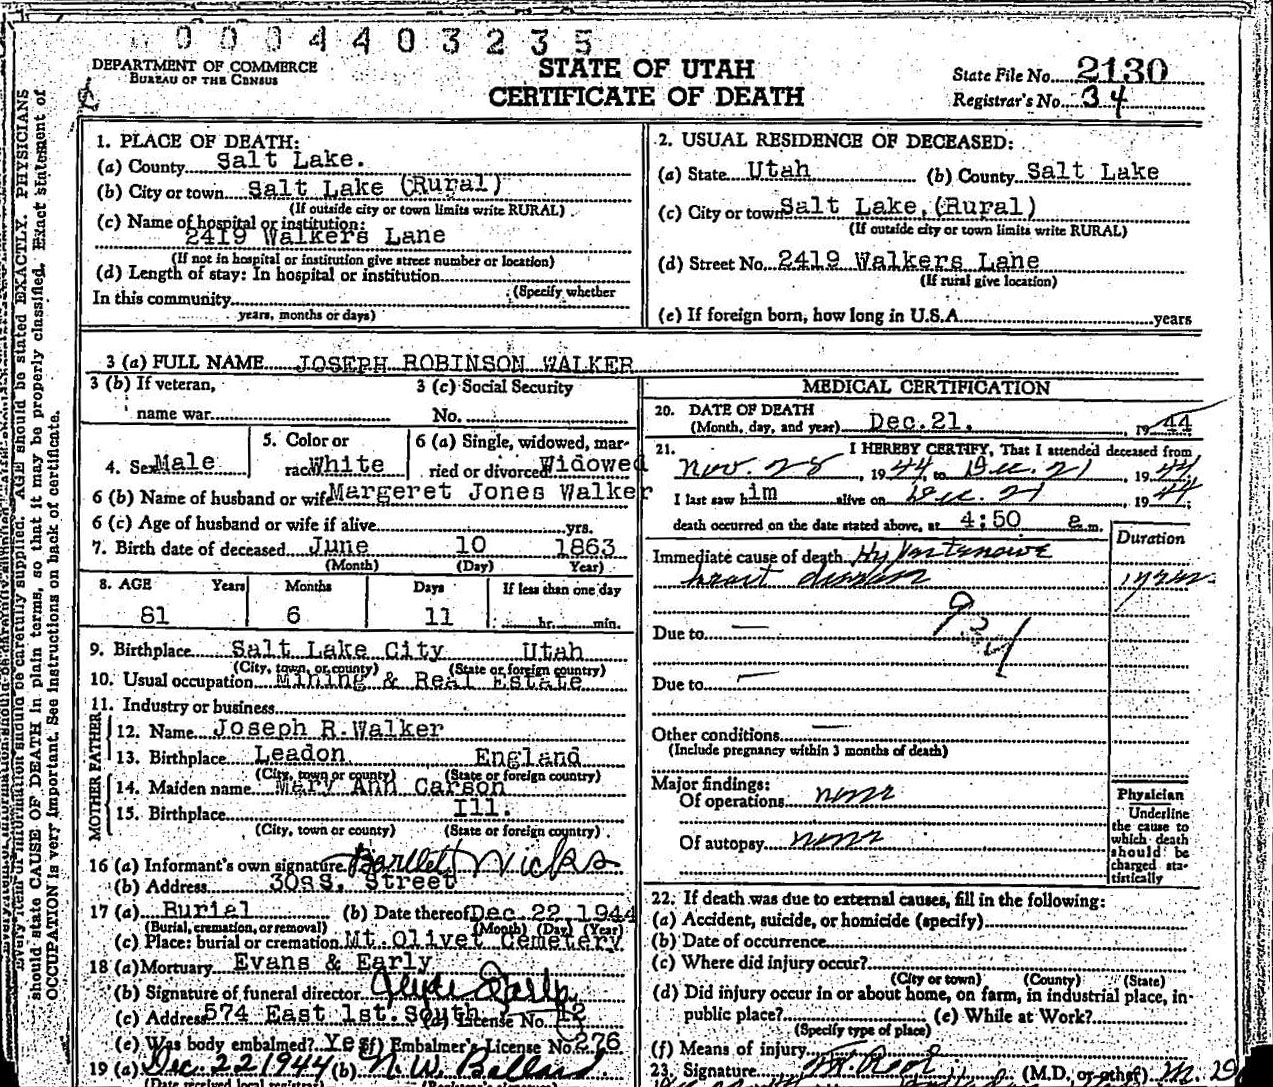 0004403235
DEPARTMENT OF COMMERCE
BUREAU OF THE CENSUS
STATE OF UTAH
CERTIFICATE OF DEATH
State File No. 2130
Registrar's No. 34
1. PLACE OF DEATH:
(a) County Salt Lake.
(b) City or town Salt Lake (Rural)
(If outside city or town limits write RURAL)
(c) Name of hospital or institution:
2419 Walkers Lane
(If not in hospital or institution give street number or location)
(d) Length of stay: In hospital or institution
(Specify whether
In this community
years, months or days)
2. USUAL RESIDENCE OF DECEASED:
(a) State Utah (b) County Salt Lake
(c) City or town Salt Lake, (Rural)
(If outside city or town limits write RURAL)
(d) Street No. 2419 Walkers Lane
(If rural give location)
(e) If foreign born, how long in U.S.A. years
3 (a) FULL NAME JOSEPH ROBINSON WALKER
3 (b) If veteran,
name war
3 (c) Social Security
No.
4. Sex Male
5. Color or
race White
6 (a) Single, widowed, mar-
ried or divorced Widowed
6 (b) Name of husband or wife Margeret Jones Walker
6 (c) Age of husband or wife if alive yrs.
7. Birth date of deceased June 10 1863
(Month) (Day) Year)
8. AGE Years Months Days If less than one day
81 6 11 hr. min.
9. Birthplace Salt Lake City Utah
(City, town, or county) (State or foreign country)
10. Usual occupation Mining & Real Estate
11. Industry or business
FATHER
12. Name Joseph R. Walker
13. Birthplace Leadon England
(City, town or county) (State or foreign country)
MOTHER
14. Maiden name Mary Ann Carson
15. Birthplace Ill.
(City, town or county) (State or foreign country)
16 (a) Informant's own signature Bartlett Wicks
(b) Address Street
17 (a) Burial (b) Date thereof Dec 22, 1944
(Burial, cremation, or removal) (Month) (Day) (Year)
(c) Place: burial or cremation Mt. Olivet Cemetery
18 (a) Mortuary Evans & Early
(b) Signature of funeral director
(c) Address 574 East 1st. South (d) License No. 12
(e) Was body embalmed? Yes (f) Embalmer's License No. 276
19 (a) Dec. 22 1944 (b) N. W. Ballard
(Date received local registrar)
MEDICAL CERTIFICATION
20. DATE OF DEATH
(Month, day, and year) Dec. 21. 1944
21. I HEREBY CERTIFY, That I attended deceased from
Nov. 28, 1944, to Dec. 21, 1944
I last saw him alive on Dec. 21 1944;
death occurred on the date stated above, at 4:50 a m.
Duration
Immediate cause of death Hypertensive
heart disease
Due to —
Due to —
Other conditions —
(Include pregnancy within 3 months of death)
Major findings:
Of operations none
Of autopsy none
Physician
Underline
the cause to
which death
should be
charged sta-
tistically
22. If death was due to external causes, fill in the following:
(a) Accident, suicide, or homicide (specify)
(b) Date of occurrence
(c) Where did injury occur?
(City or town) (County) (State)
(d) Did injury occur in or about home, on farm, in industrial place, in-
public place? (e) While at Work?
(Specify type of place)
(f) Means of injury
23. Signature (M.D. or other)
should state CAUSE OF DEATH in plain terms, so that it may be properly classified. Exact statement of
OCCUPATION is very important. See instructions on back of certificate.
should be carefully supplied. AGE should be stated EXACTLY. PHYSICIANS